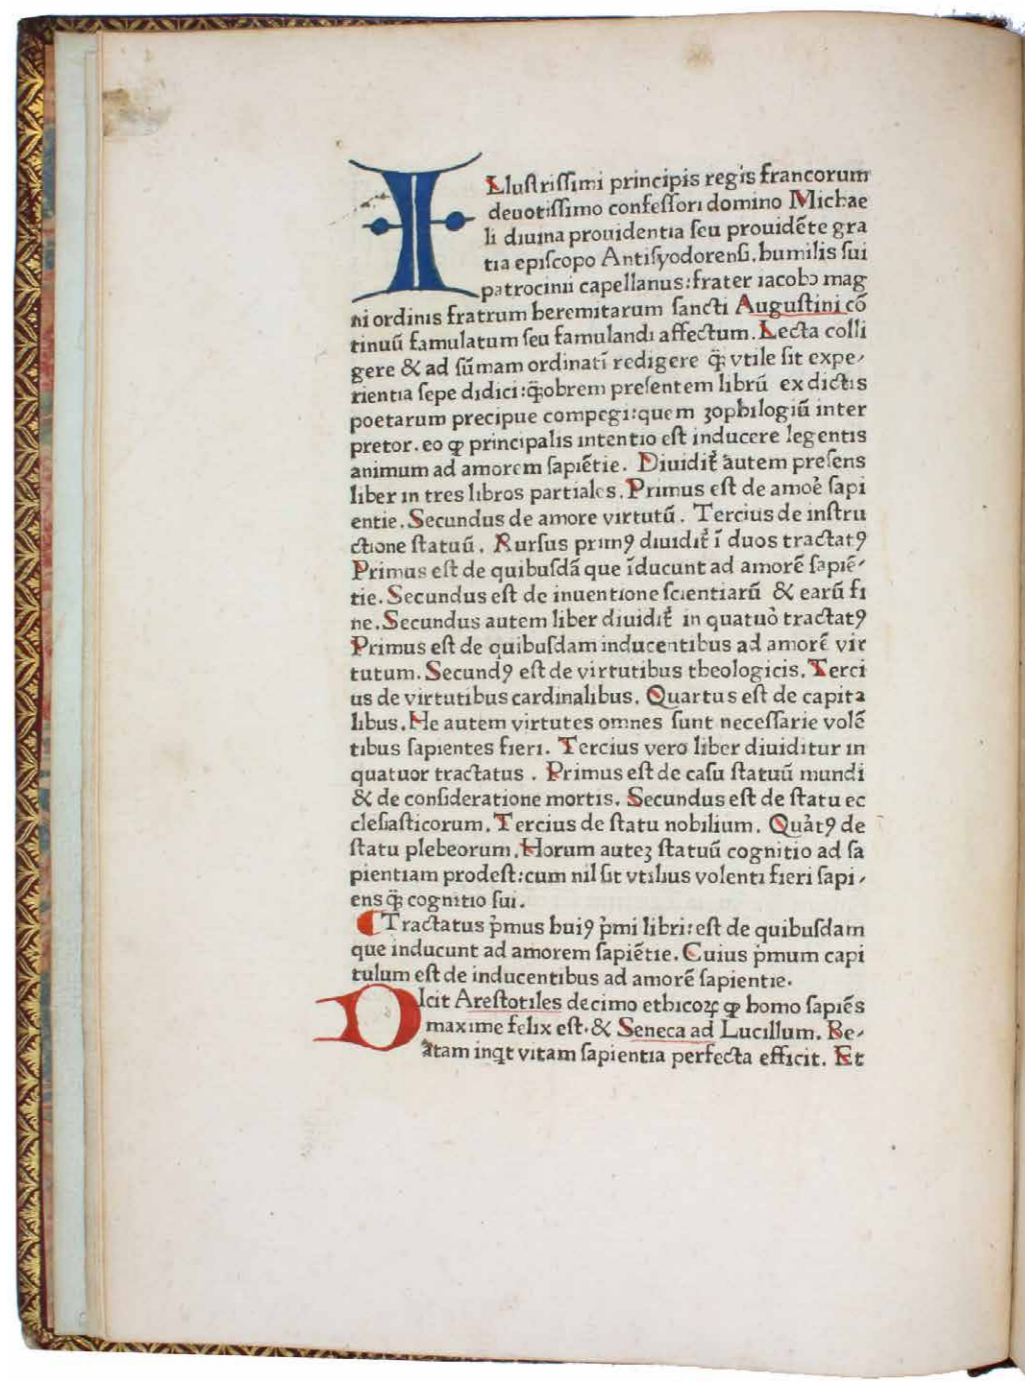 ILlustrissimi principis regis francorum
deuotissimo confessori domino Michae
li diuina prouidentia seu prouidēte gra
tia episcopo Antisyodorensi. humilis sui
patrocinii capellanus: frater iacobꝰ mag
ni ordinis fratrum heremitarum sancti Augustini cō
tinuū famulatum seu famulandi affectum. Lecta colli
gere & ad sūmam ordinatī redigere q̄ȝ vtile sit expe⸗
rientia sepe didici: q̄ȝobrem presentem librū ex dictis
poetarum precipue compegi: quem zophilogiū inter
pretor. eo ꝙ principalis intentio est inducere legentis
animum ad amorem sapiētie. Diuidit᷑ autem presens
liber in tres libros partiales. Primus est de amoꝛ̉e sapi
entie. Secundus de amore virtutū. Tercius de instru
ctione statuū. Rursus primꝰ diuidit᷑ ī duos tractatꝰ
Primus est de quibusdā que īducunt ad amorē sapiē⸗
tie. Secundus est de inuentione scientiarū & earū fi
ne. Secundus autem liber diuidit᷑ in quatuoꝛ̉ tractatꝰ
Primus est de quibusdam inducentibus ad amorē vir
tutum. Secundꝰ est de virtutibus theologicis. Terci
us de virtutibus cardinalibus. Quartus est de capita
libus. He autem virtutes omnes sunt necessarie volē
tibus sapientes fieri. Tercius vero liber diuiditur in
quatuor tractatus. Primus est de casu statuū mundi
& de consideratione mortis. Secundus est de statu ec
clesiasticorum. Tercius de statu nobilium. Qua̓tꝰ de
statu plebeorum. Horum autez statuū cognitio ad sa
pientiam prodest: cum nil sit vtilius volenti fieri sapi⸗
ens q̄ȝ cognitio sui.
¶Tractatus p̓mus huiꝰ p̓mi libri: est de quibusdam
que inducunt ad amorem sapiētie. Cuius p̓mum capi
tulum est de inducentibus ad amorē sapientie.
DIcit Arestotiles decimo ethicoꝝ ꝙ homo sapiēs
maxime felix est. & Seneca ad Lucillum. Be⸗
atam inqt vitam sapientia perfecta efficit. Et